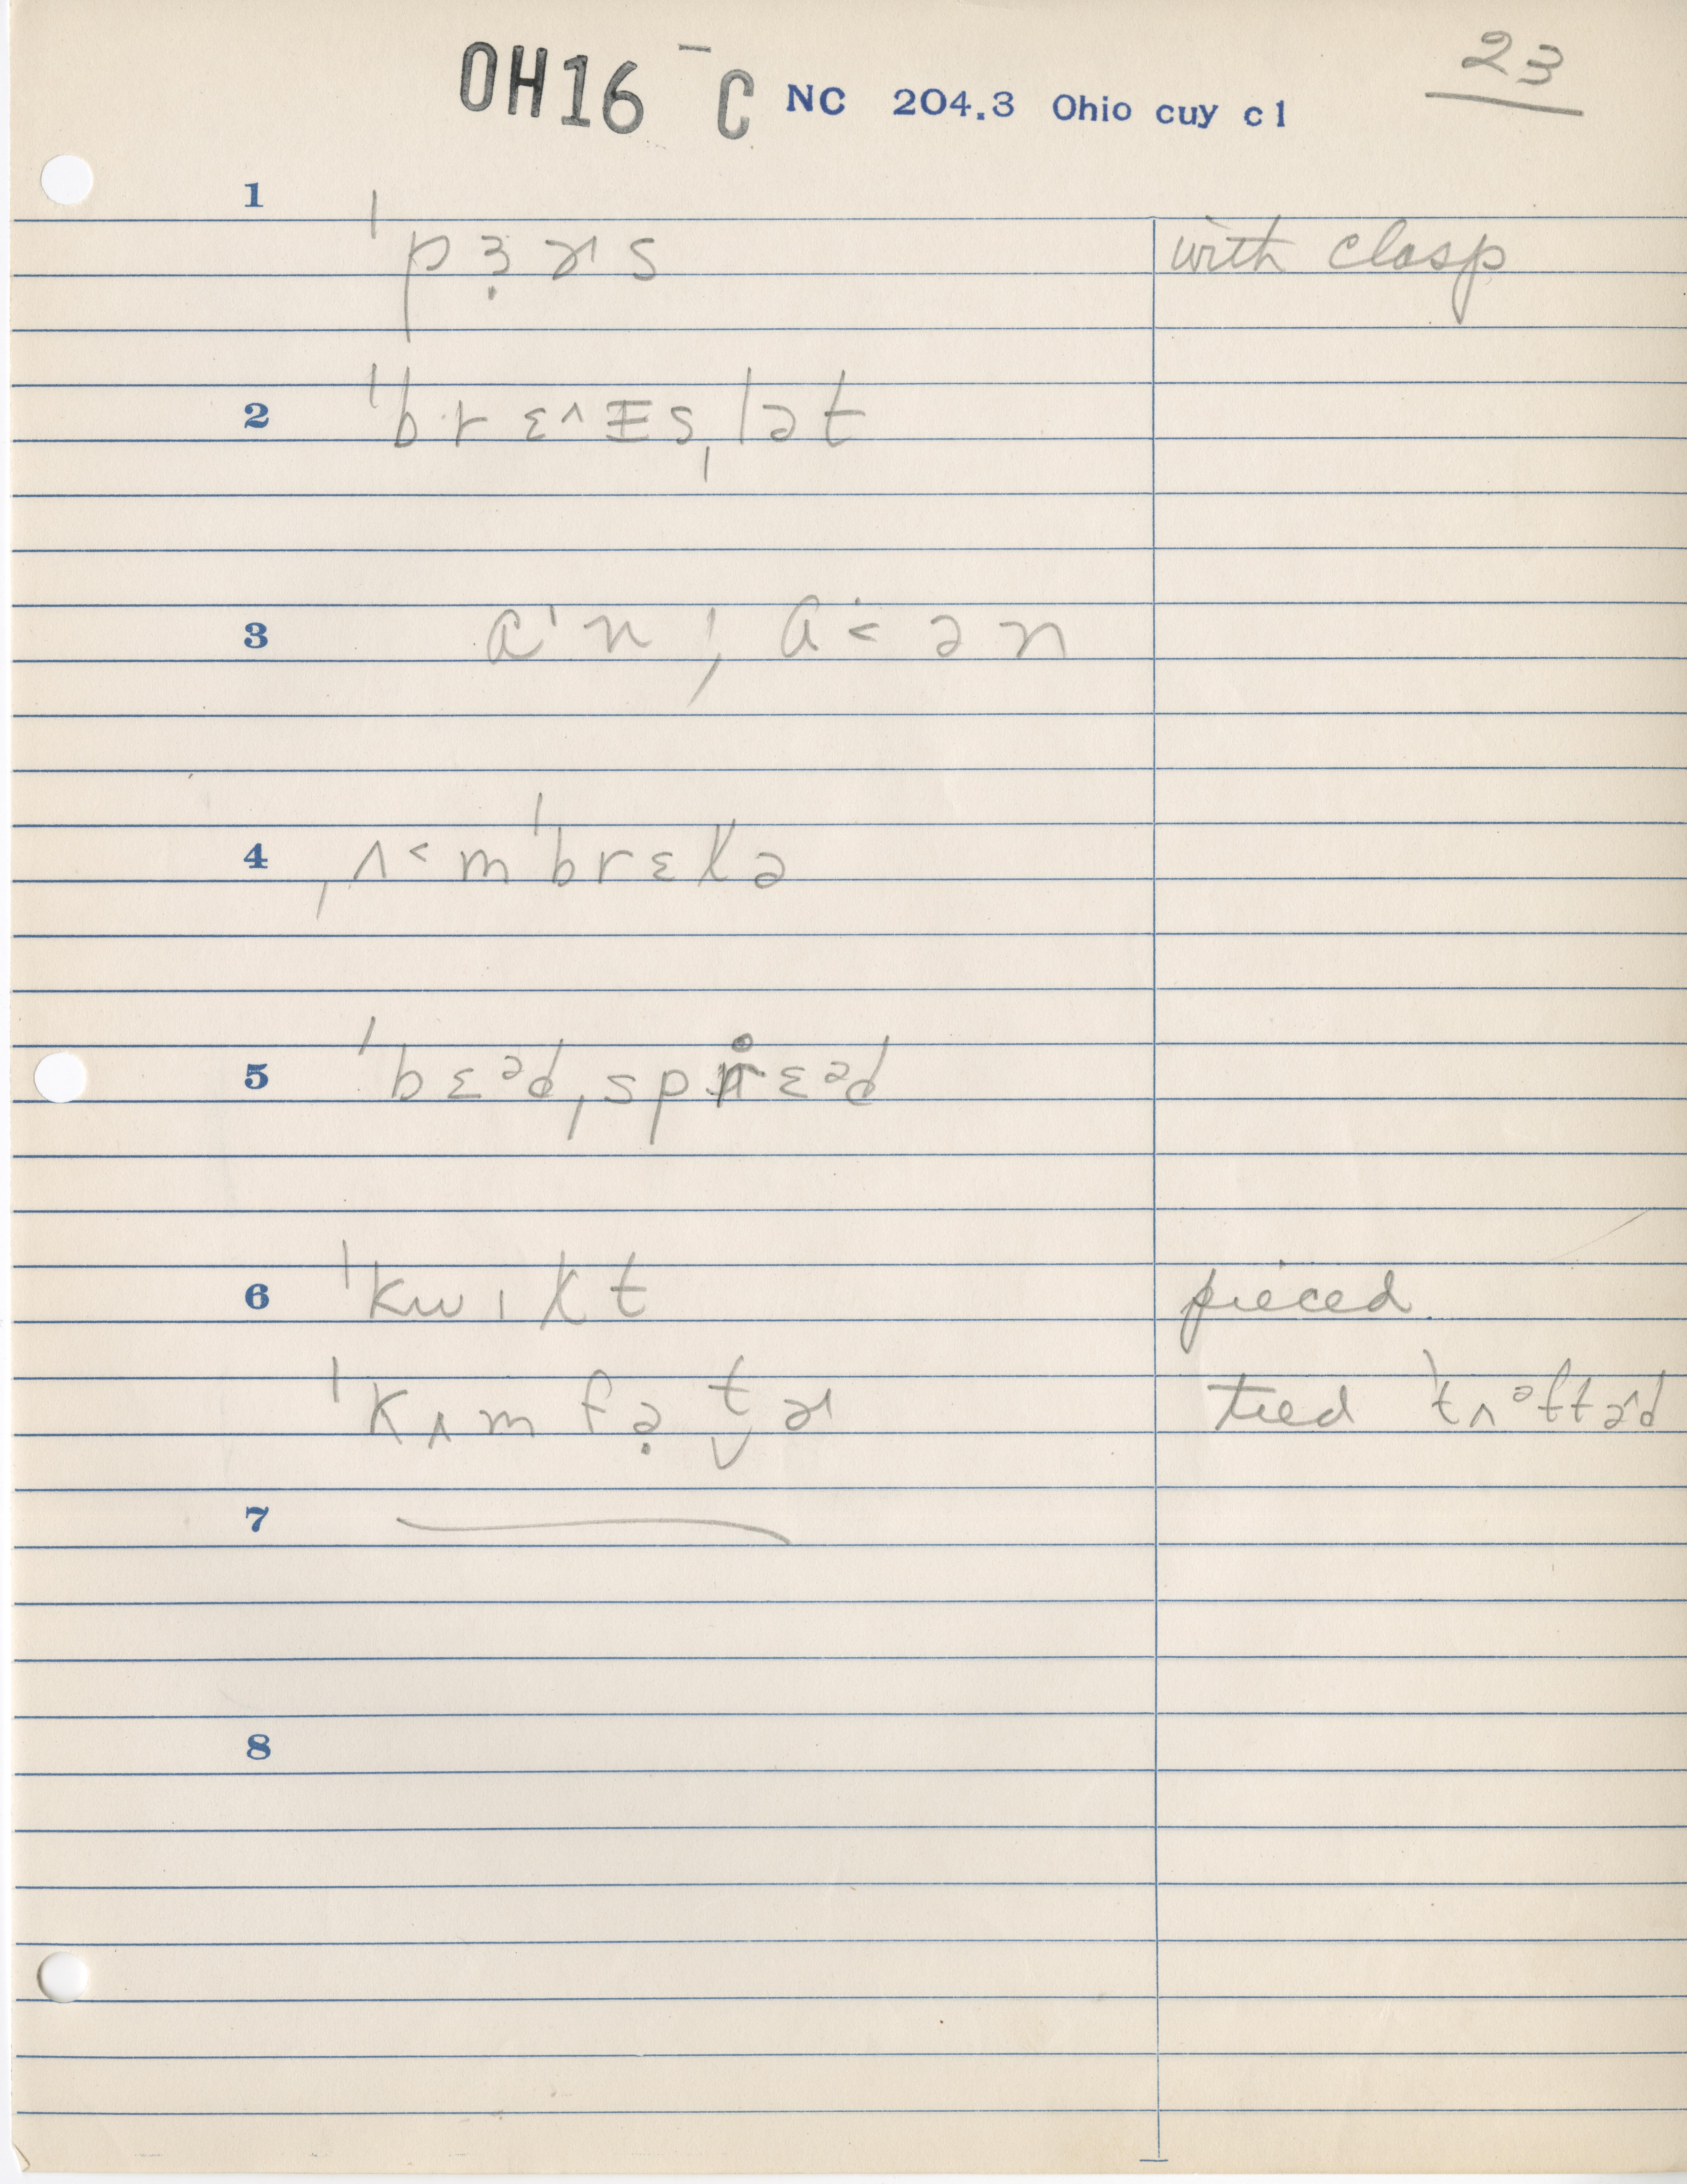 OH16 - C NC 204.3 Ohio cuy c1 23
1
ˈpɜ̣ɚs with clasp
2 ˈbrɛ^ᵻsˌlət
3 a'n ; ɑ·< ən
4 ˌʌ<mˈbrɛɫə
5 ˈbɛᵊdˌspr̊ɛᵊd
6 ˈkwɪɫt pieced
ˈkʌmfə̣t̬ɚ tied
7
8